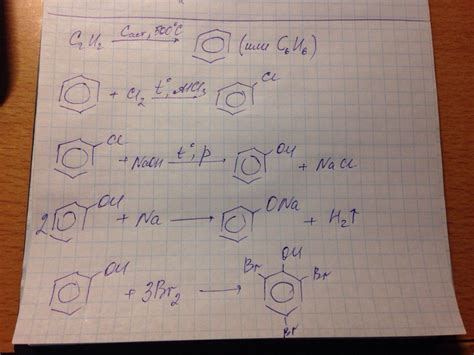 C₂H₂ Cакт, 500°C (или C₆H₆)
+ Cl₂ t°, AlCl₃ Cl
Cl + NaOH t°, p OH + NaCl
2 OH + Na ONa + H₂↑
OH + 3Br₂ Br OH Br Br